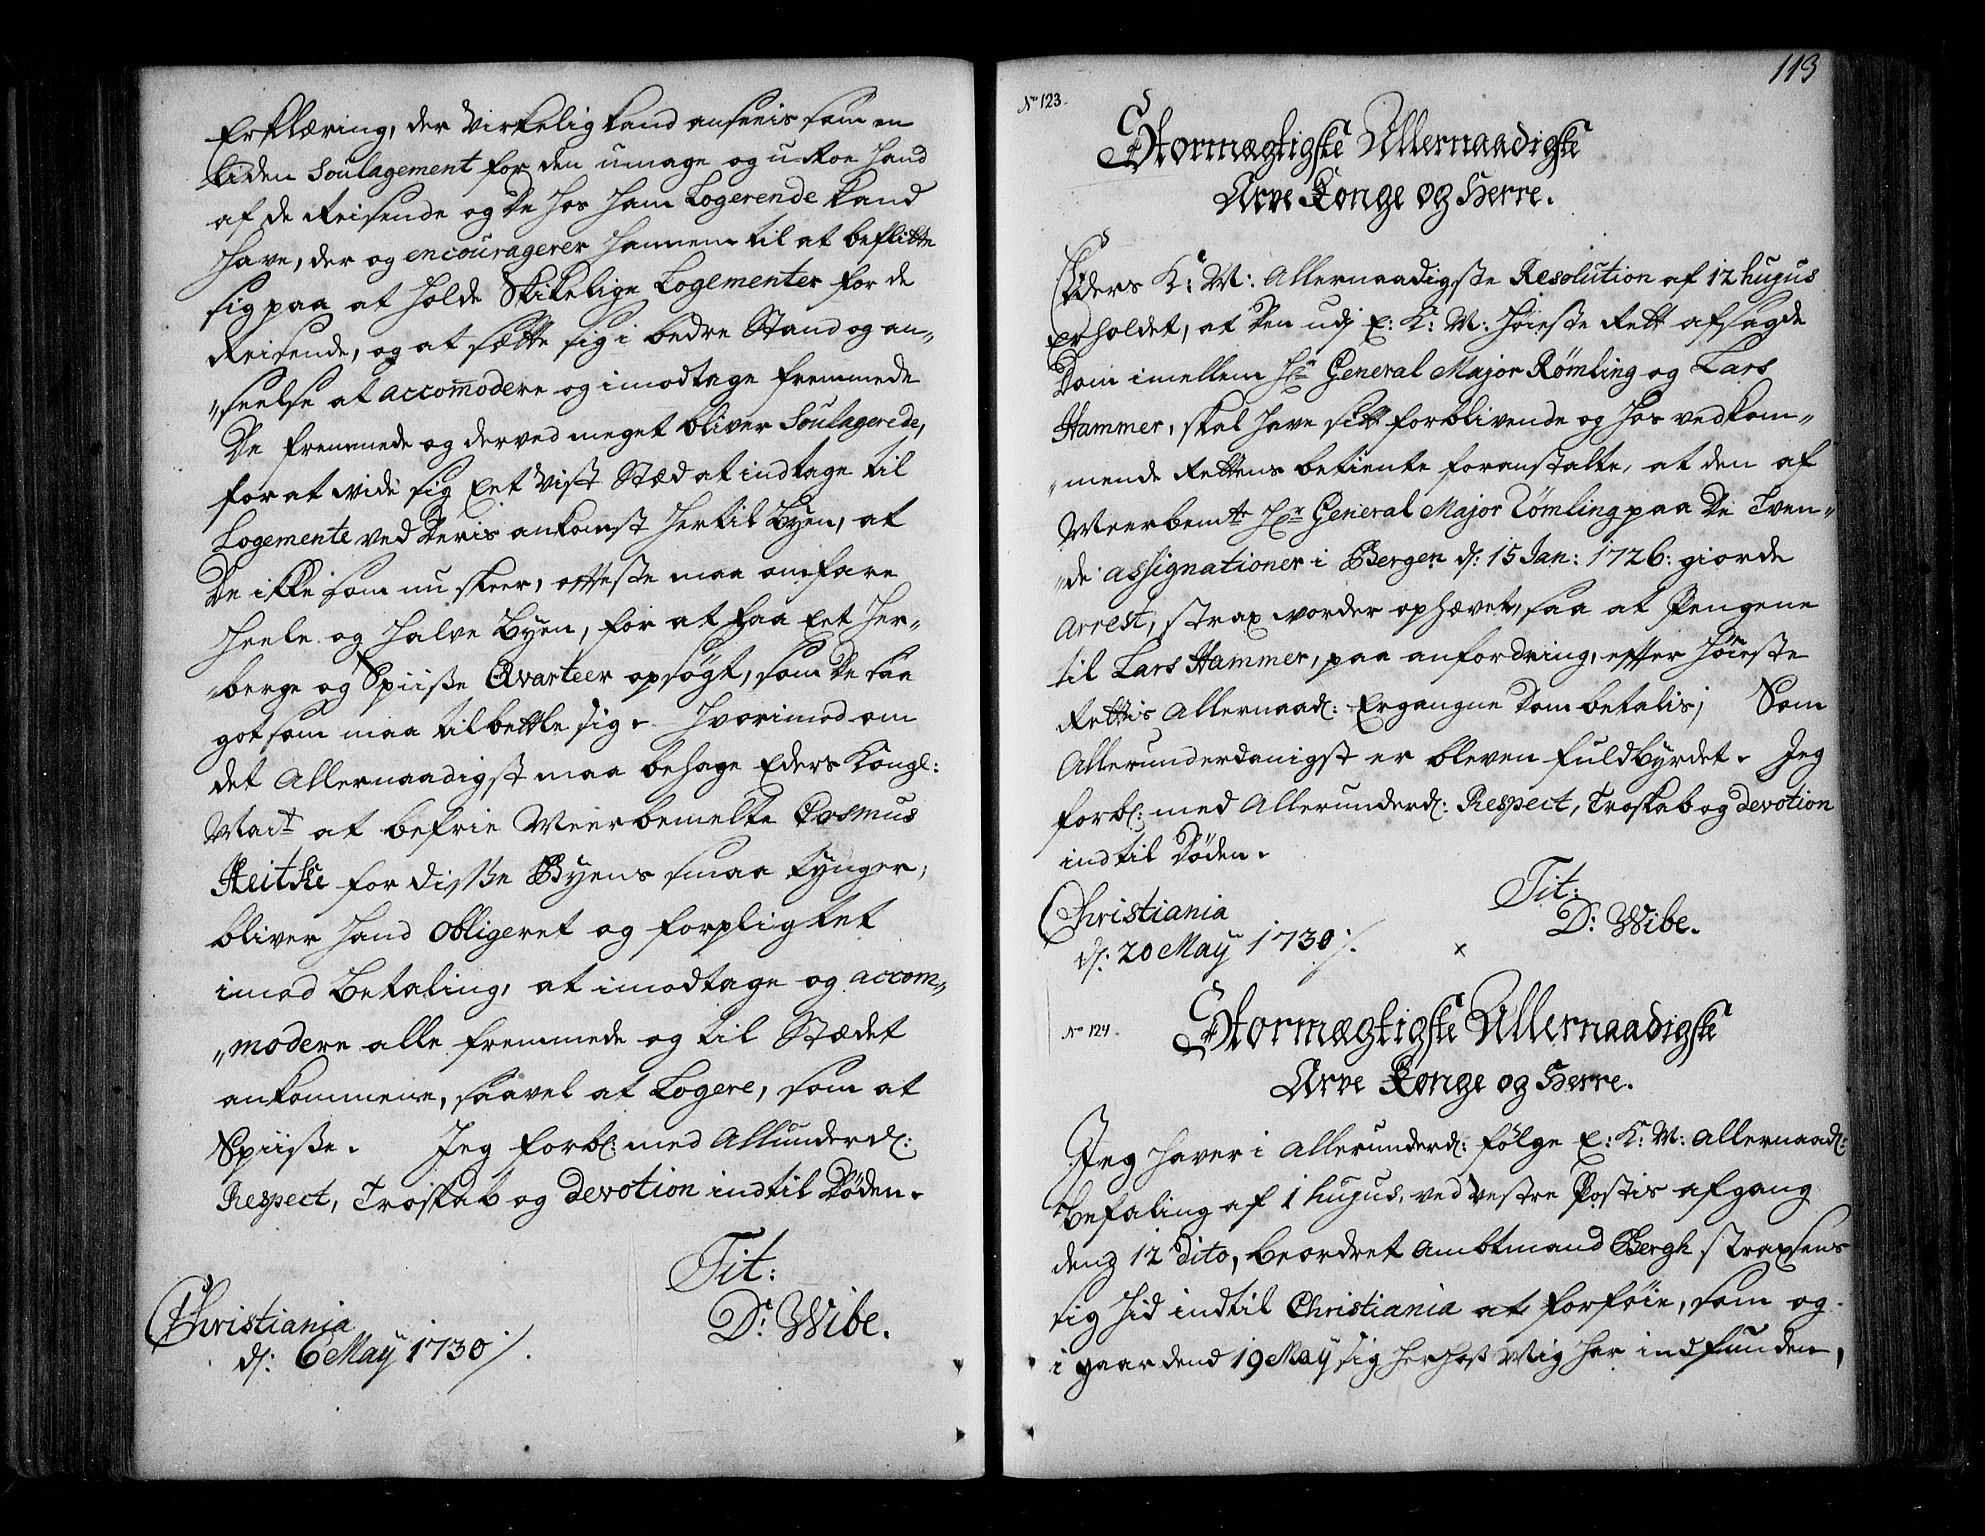 Erklæring, der Virkelig kand anseeis som en
liden Soulagement for den umage og u-Roe hand
af de Reisende og De hos ham Logerende kand
have, der og encouragerer hannem til at beflitte
sig paa at holde Skikelige Logementer for de
Reisende, og at sætte sig i bedre Stand og an„
„seelse at accomodere og imodtage fremmede
De fremmede og derved meget bliver Soulagerede,
for at vide sig Eet vist Stæd at indtage til
Logemente ved deris ankomst hertil Byen, at
De ikke som nu skeer, offteste maa omfare
heele og halve Byen, for at faa Eet Her„
„berge og Spiiße Qvarteer opsøgt, som De saa
got som maa tilbettle sig. Hvorimod om
det Allernaadigst maa behage Eders Kongl:
Mait at befrie Meerbemelte Rasmus
for diße Byens smaa tynger,
bliver hand obligeret og forpligtet
imod Betaling, at imodtage og accom„
„modere alle fremmede og til Stædet
ankommene, saavel at Logere, som at
Spiiße. Jeg forbl: med Allunderd:
Respect, Troskab og devotion indtil Døden.
Tit:
D: Wibe.
Christiania
d: 6 May 1730 /.
113
No 123.
Stormægtigste Allernaadigste
Arve Konge og Herre.
Eders K: M: Allernaadigste Resolution af 12 hujus
Erholdet, at Den udj E: K: M: Høieste Rett afsagde
Dom imellem Hr General Major Rømling og Lars
Hammer, skal have sitt forblivende og hos vedkom„
„mende Rettens betiente foranstalte, at den af
Meerbemte Hr General Major Rømling paa De Tven„
„de assignationer i Bergen d: 15 Jan: 1726: giorde
Arrest, strax vorder ophævet, saa at Pengene
til Lars Hammer, paa anfordring, effter Høieste
Rettis Allernaad: Ergangne Dom betalis; Som
Allerunderdanigst er bleven fuldbyrdet. Jeg
forbl: med Allerunderd: Respect, Troskab og devotion
indtil Døden.
Tit:
D: Wibe.
Christiania
d: 20 May 1730 /.
x
No 124.
Stormægtigste Allernaadigste
Arve Konge og Herre.
Jeg haver i Allerunderd: følge E: K: M: Allernaad:
Befaling af 1 hujus, ved Vestre Postis afgang
denz 12 dito, beordret Ambtmand Bergh straxens
sig hid indtil Christiania at forføie, som og
i gaar dend 19 May sig her hoß Mig har indfunden,